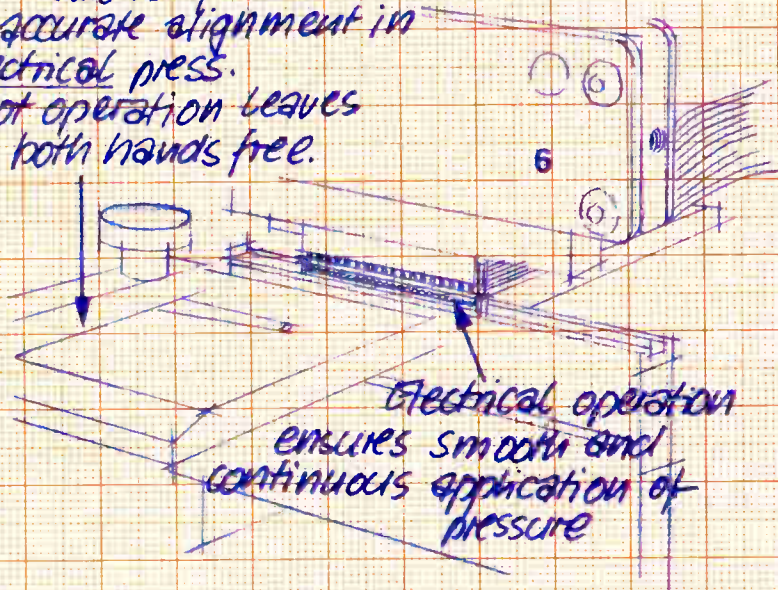 accurate alignment in
ctrical press.
ot operation leaves
both hands free.
6
Electrical operation
ensures smooth and
continuous application of
pressure